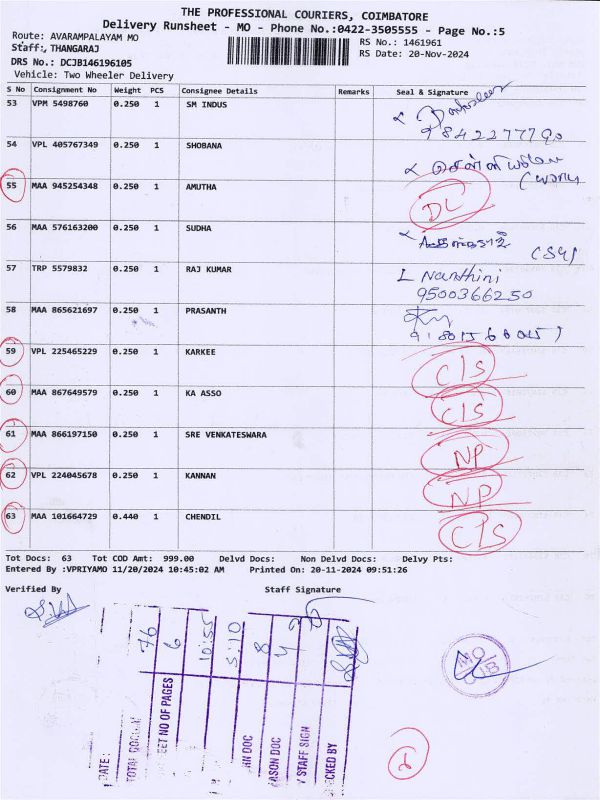 THE PROFESSIONAL COURIERS, COIMBATORE
Delivery Runsheet - MO - Phone No.:0422-3505555 - Page No.:5
Route: AVARAMPALAYAM MO
Staff: THANGARAJ
RS No.: 1461961
RS Date: 20-Nov-2024
DRS No.: DCJB146196105
Vehicle: Two Wheeler Delivery
S No Consignment No Weight PCS Consignee Details Remarks Seal & Signature
53 VPM 5498760 0.250 1 SM INDUS
9842277790
54 VPL 405767349 0.250 1 SHOBANA
55 MAA 945254348 0.250 1 AMUTHA DL
56 MAA 576163200 0.250 1 SUDHA
57 TRP 5579832 0.250 1 RAJ KUMAR L Nanthini
9500366250
58 MAA 865621697 0.250 1 PRASANTH
59 VPL 225465229 0.250 1 KARKEE C/S
60 MAA 867649579 0.250 1 KA ASSO C/S
61 MAA 866197150 0.250 1 SRE VENKATESWARA NP
62 VPL 224045678 0.250 1 KANNAN NP
63 MAA 101664729 0.440 1 CHENDIL C/S
Tot Docs: 63 Tot COD Amt: 999.00 Delvd Docs: Non Delvd Docs: Delvy Pts:
Entered By :VPRIYAMO 11/20/2024 10:45:02 AM Printed On: 20-11-2024 09:51:26
Verified By Staff Signature
DATE :
76
6
10:55
5:10
8
4